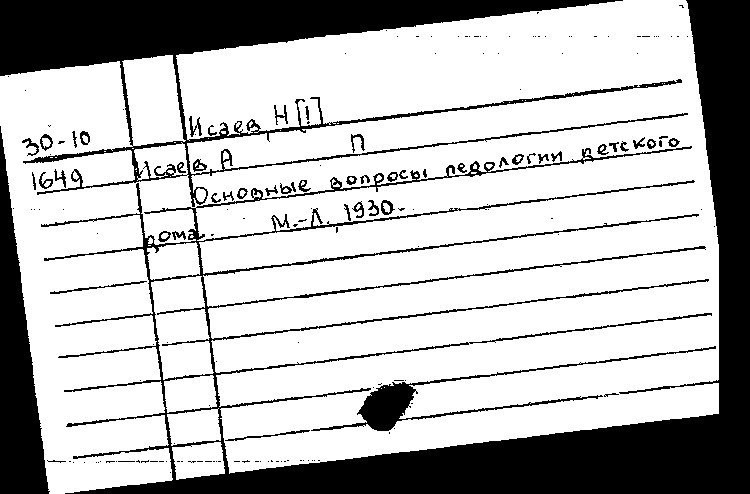 Исаев, Н [!]
30-10
Исаев, А П
1649
Основные вопросы педологии детского
дома. М.-Л., 1930.